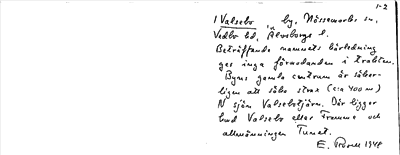 1-2
1 Valsebo, by, Nössemarks sn,
Vedbo hd, Älvsborgs l.
Beträffande namnets härledning
ges inga förmodanden i trakten.
Byns gamla centrum är säker-
ligen att söka strax (c:a 400 m)
N sjön Valsebotjärn. Där ligger
hmd Valsebo eller Framme och
allmänningen Tunet.
E. 1948